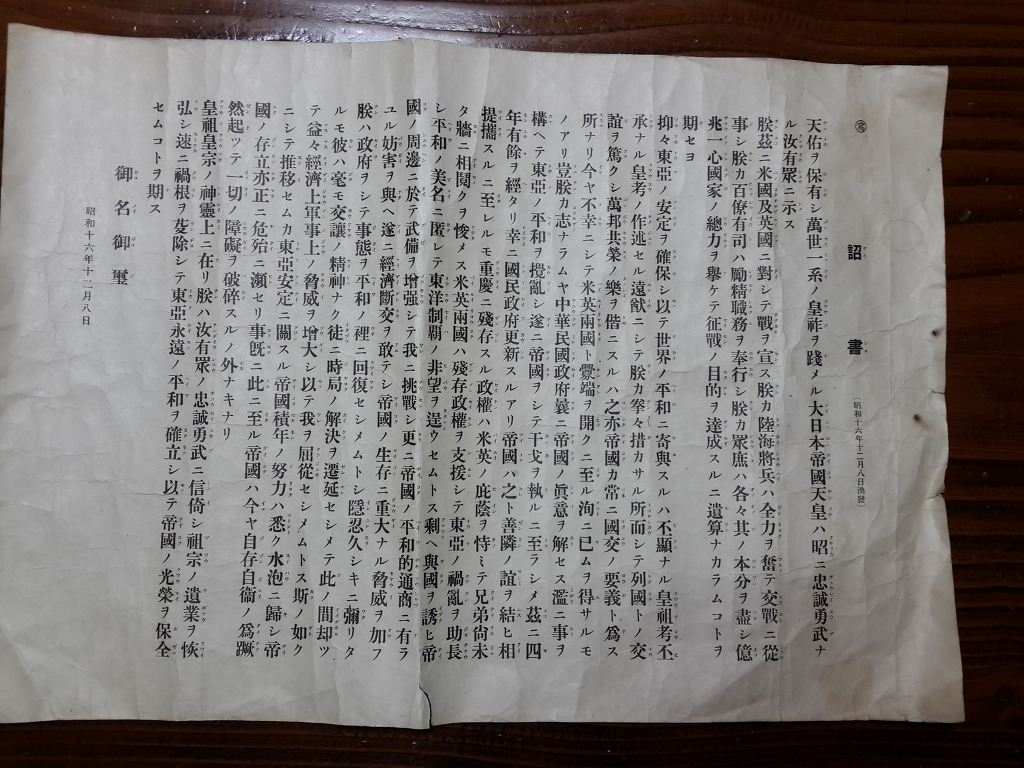 ㊢
詔書（昭和十六年十二月八日渙發）
天佑ヲ保有シ萬世一系ノ皇祚ヲ踐メル大日本帝國天皇ハ昭ニ忠誠勇武ナ
ル汝有眾ニ示ス
朕茲ニ米國及英國ニ對シテ戰ヲ宣ス朕カ陸海將兵ハ全力ヲ奮テ交戰ニ從
事シ朕カ百僚有司ハ勵精職務ヲ奉行シ朕カ眾庶ハ各々其ノ本分ヲ盡シ億
兆一心國家ノ總力ヲ擧ケテ征戰ノ目的ヲ達成スルニ遺算ナカラムコトヲ
期セヨ
抑々東亞ノ安定ヲ確保シ以テ世界ノ平和ニ寄與スルハ丕顯ナル皇祖考丕
承ナル皇考ノ作述セル遠猷ニシテ朕カ拳々措カサル所而シテ列國トノ交
誼ヲ篤クシ萬邦共榮ノ樂ヲ偕ニスルハ之亦帝國カ常ニ國交ノ要義ト爲ス
所ナリ今ヤ不幸ニシテ米英兩國ト釁端ヲ開クニ至ル洵ニ已ムヲ得サルモ
ノアリ豈朕カ志ナラムヤ中華民國政府曩ニ帝國ノ眞意ヲ解セス濫ニ事ヲ
構ヘテ東亞ノ平和ヲ攪亂シ遂ニ帝國ヲシテ干戈ヲ執ルニ至ラシメ茲ニ四
年有餘ヲ經タリ幸ニ國民政府更新スルアリ帝國ハ之ト善隣ノ誼ヲ結ヒ相
提攜スルニ至レルモ重慶ニ殘存スル政權ハ米英ノ庇蔭ヲ恃ミテ兄弟尙未
タ牆ニ相鬩クヲ悛メス米英兩國ハ殘存政權ヲ支援シテ東亞ノ禍亂ヲ助長
シ平和ノ美名ニ匿レテ東洋制覇ノ非望ヲ逞ウセムトス剩ヘ與國ヲ誘ヒ帝
國ノ周邊ニ於テ武備ヲ增强シテ我ニ挑戰シ更ニ帝國ノ平和的通商ニ有ラ
ユル妨害ヲ與ヘ遂ニ經濟斷交ヲ敢テシ帝國ノ生存ニ重大ナル脅威ヲ加フ
朕ハ政府ヲシテ事態ヲ平和ノ裡ニ回復セシメムトシ隱忍久シキニ彌リタ
ルモ彼ハ毫モ交讓ノ精神ナク徒ニ時局ノ解決ヲ遷延セシメテ此ノ間却ツ
テ益々經濟上軍事上ノ脅威ヲ增大シ以テ我ヲ屈從セシメムトス斯ノ如ク
ニシテ推移セムカ東亞安定ニ關スル帝國積年ノ努力ハ悉ク水泡ニ歸シ帝
國ノ存立亦正ニ危殆ニ瀕セリ事旣ニ此ニ至ル帝國ハ今ヤ自存自衞ノ爲蹶
然起ツテ一切ノ障礙ヲ破碎スルノ外ナキナリ
皇祖皇宗ノ神靈上ニ在リ朕ハ汝有眾ノ忠誠勇武ニ信倚シ祖宗ノ遺業ヲ恢
弘シ速ニ禍根ヲ芟除シテ東亞永遠ノ平和ヲ確立シ以テ帝國ノ光榮ヲ保全
セムコトヲ期ス
御名御璽
昭和十六年十二月八日